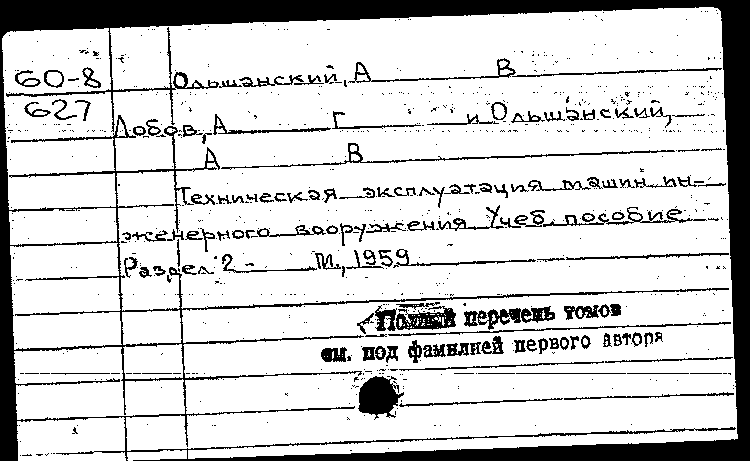 60-8
627
Ольшанский, А В
Лобов, А Г и Ольшанский,
А В
Техническая эксплуатация машин ин-
женерного вооружения Учеб. пособие
Раздел 2 - М., 1959
Полный перечень томов
см. под фамилией первого автора